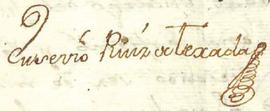 Euserio Ruiz de Texada